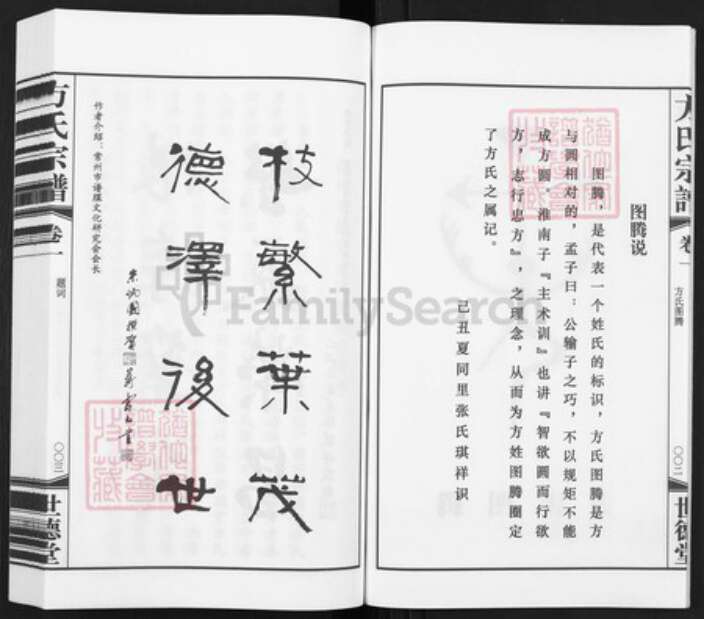 方氏宗谱
卷一
方氏图腾
〇〇二
世德堂
图腾说
图腾，是代表一个姓氏的标识，方氏图腾是方
与圆相对的，孟子曰：公输子之巧，不以规矩不能
成方圆。淮南子『主术训』也讲『智欲圆而行欲
方，志行忠方』，之理念，从而为方姓图腾圈定
了方氏之属记。
己丑夏同里张氏琪祥识
枝繁葉茂
德澤後世
作者介绍：常州市谱牒文化研究会会长
方氏宗谱
卷一
题词
〇〇三
世德堂
FamilySearch